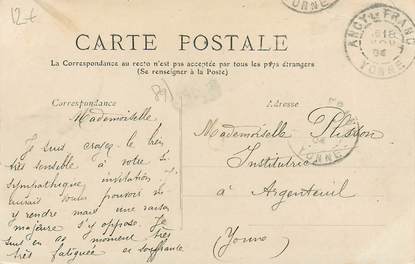 12€
CARTE POSTALE
La Correspondance au recto n'est pas acceptée par tous les pays étrangers
(Se renseigner à la Poste)
ANCY-LE-FRANC
YONNE
YONNE
Correspondance
Adresse
Mademoiselle
Je suis croyez-le bien
très sensible à votre si
sympathique invitation
aurait voulu pouvoir m'
y rendre mais une raison
majeure s'y oppose. Je
suis en ce moment très
très fatiguée et souffrante
Mademoiselle Plisson
Institutrice
à Argenteuil
(Yonne)
YONNE